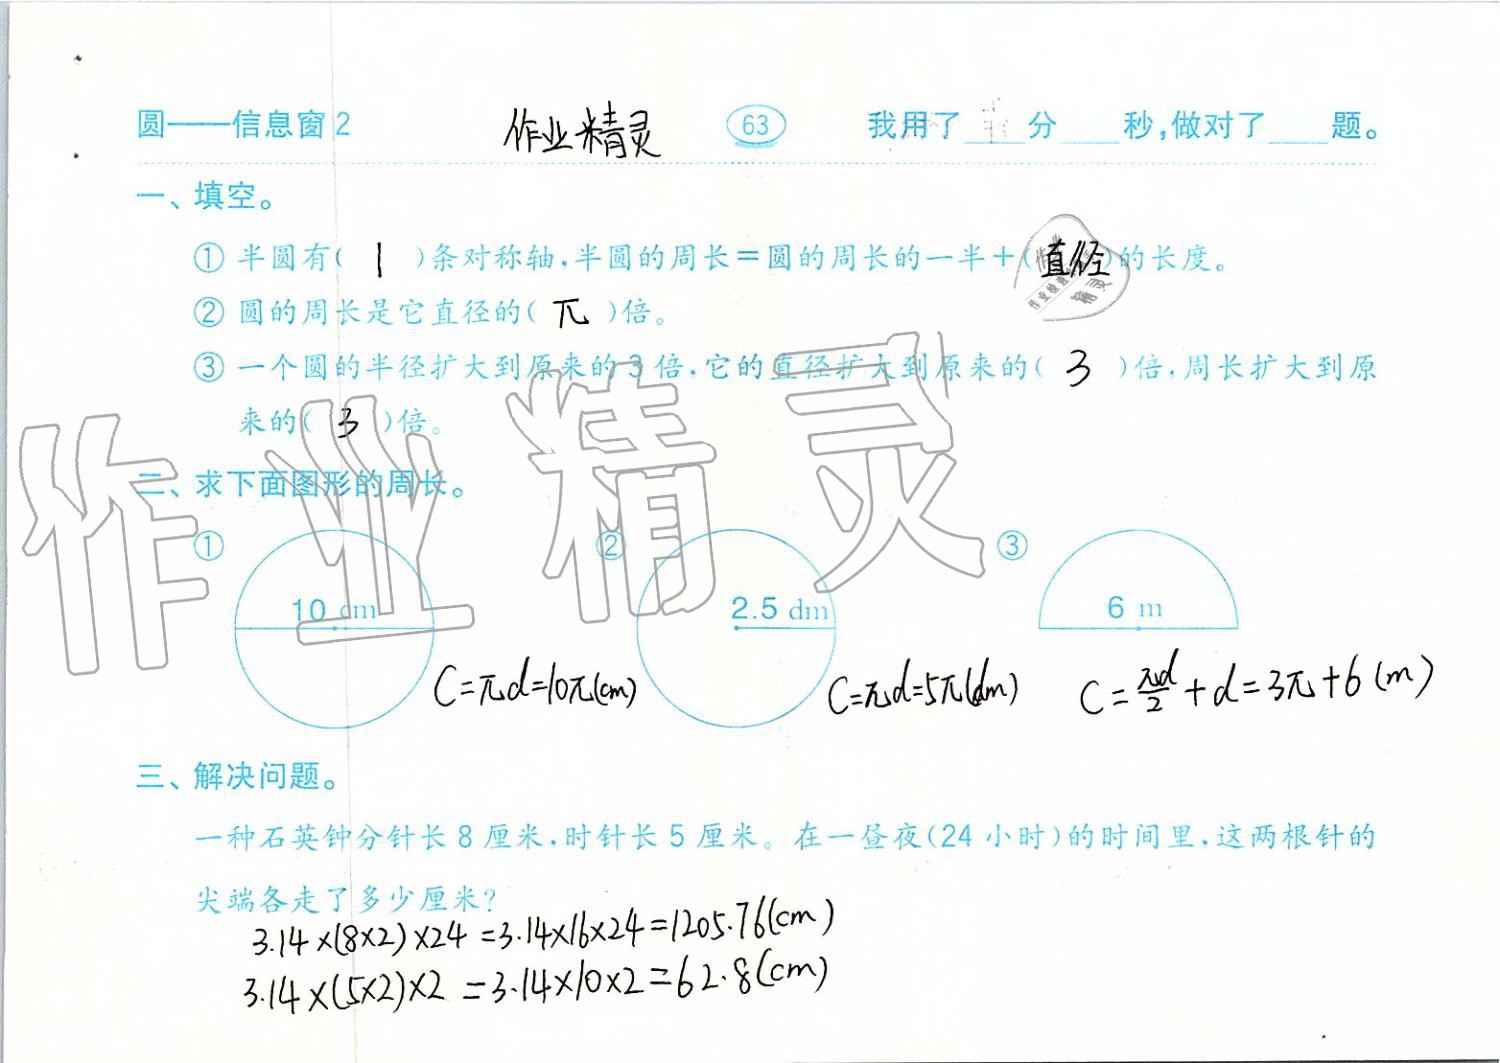 圆——信息窗2 作业精灵 63 我用了____分____秒,做对了____题。
一、填空。
① 半圆有( 1 )条对称轴,半圆的周长=圆的周长的一半+(直径)的长度。
② 圆的周长是它直径的( π )倍。
③ 一个圆的半径扩大到原来的3倍,它的直径扩大到原来的( 3 )倍,周长扩大到原
来的( 3 )倍。
二、求下面图形的周长。
① ② ③
10 cm 2.5 dm 6 m
C=πd=10π(cm) C=πd=5π(dm) C=πd/2+d=3π+6(m)
三、解决问题。
一种石英钟分针长8厘米,时针长5厘米。在一昼夜(24小时)的时间里,这两根针的
尖端各走了多少厘米?
3.14×(8×2)×24=3.14×16×24=1205.76(cm)
3.14×(5×2)×2=3.14×10×2=62.8(cm)
作业精灵